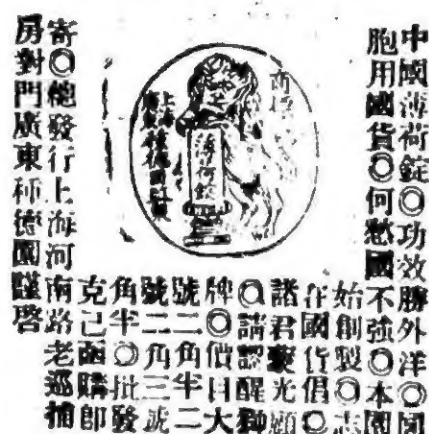 中國薄荷錠◎功效勝外洋◎同
胞用國貨◎何愁國不強◎本園
始創製◎志
在國貨倡◎
諸君光顧
◎請認醒獅
牌◎價目大
號二角半二
號二角三號
角半◎批發
克己函購即
寄◎總發行上海河南路老巡捕
房對門廣東种德園謹啓
商標
薄荷錠